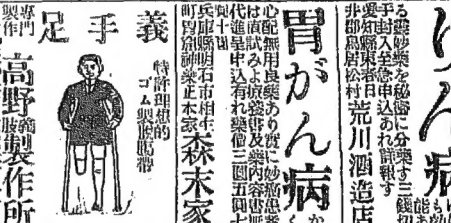 りん病
る靈妙藥を秘密に分藥す三錢切
手封入至急申込あれ詳報す
愛知縣東春日
井郡鳥居松村
荒川酒造店
胃がん病
心配無用良藥あり實に妙
は直試みよ
代進呈申込有れ藥價三圓五圓七
圓十圓
兵庫縣明石市相生
町胃癌神藥正本家
森末家
義手足
特許理想的
ゴム製
專門
製作
高野義
製作所